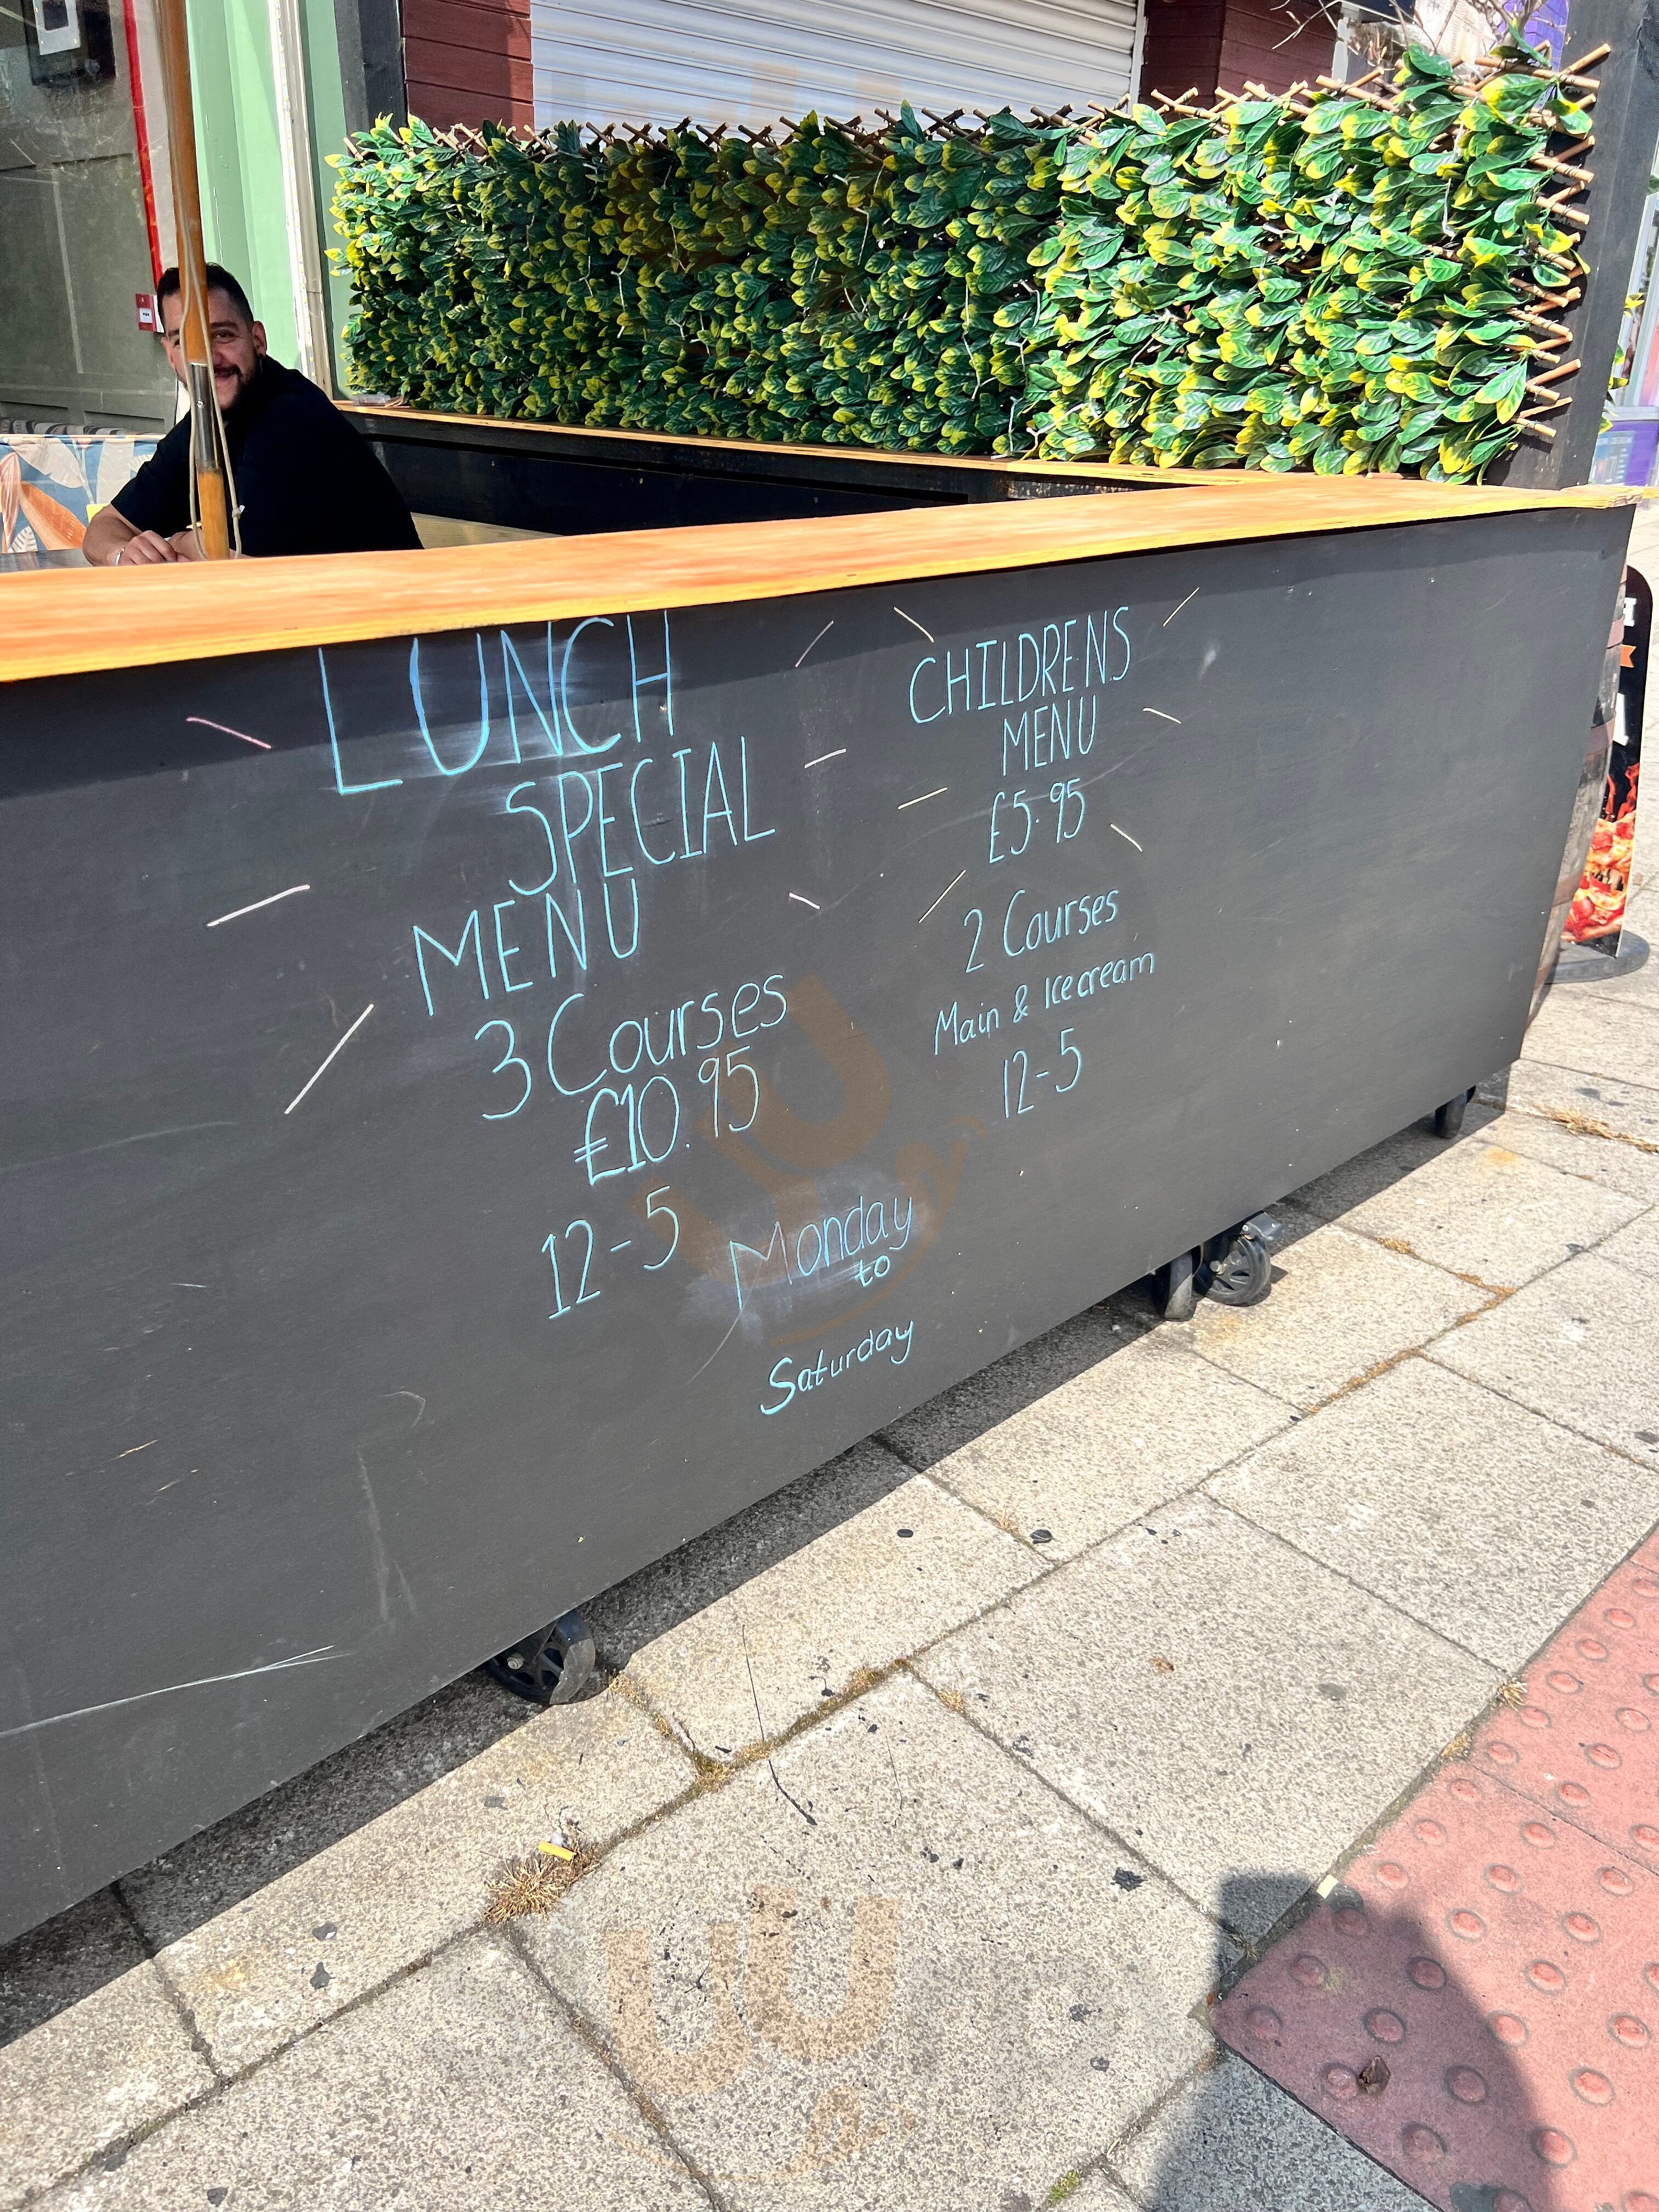 LUNCH
SPECIAL
MENU
3 Courses
£10.95
12-5
CHILDRENS
MENU
£5.95
2 Courses
Main & Icecream
12-5
Monday
to
Saturday